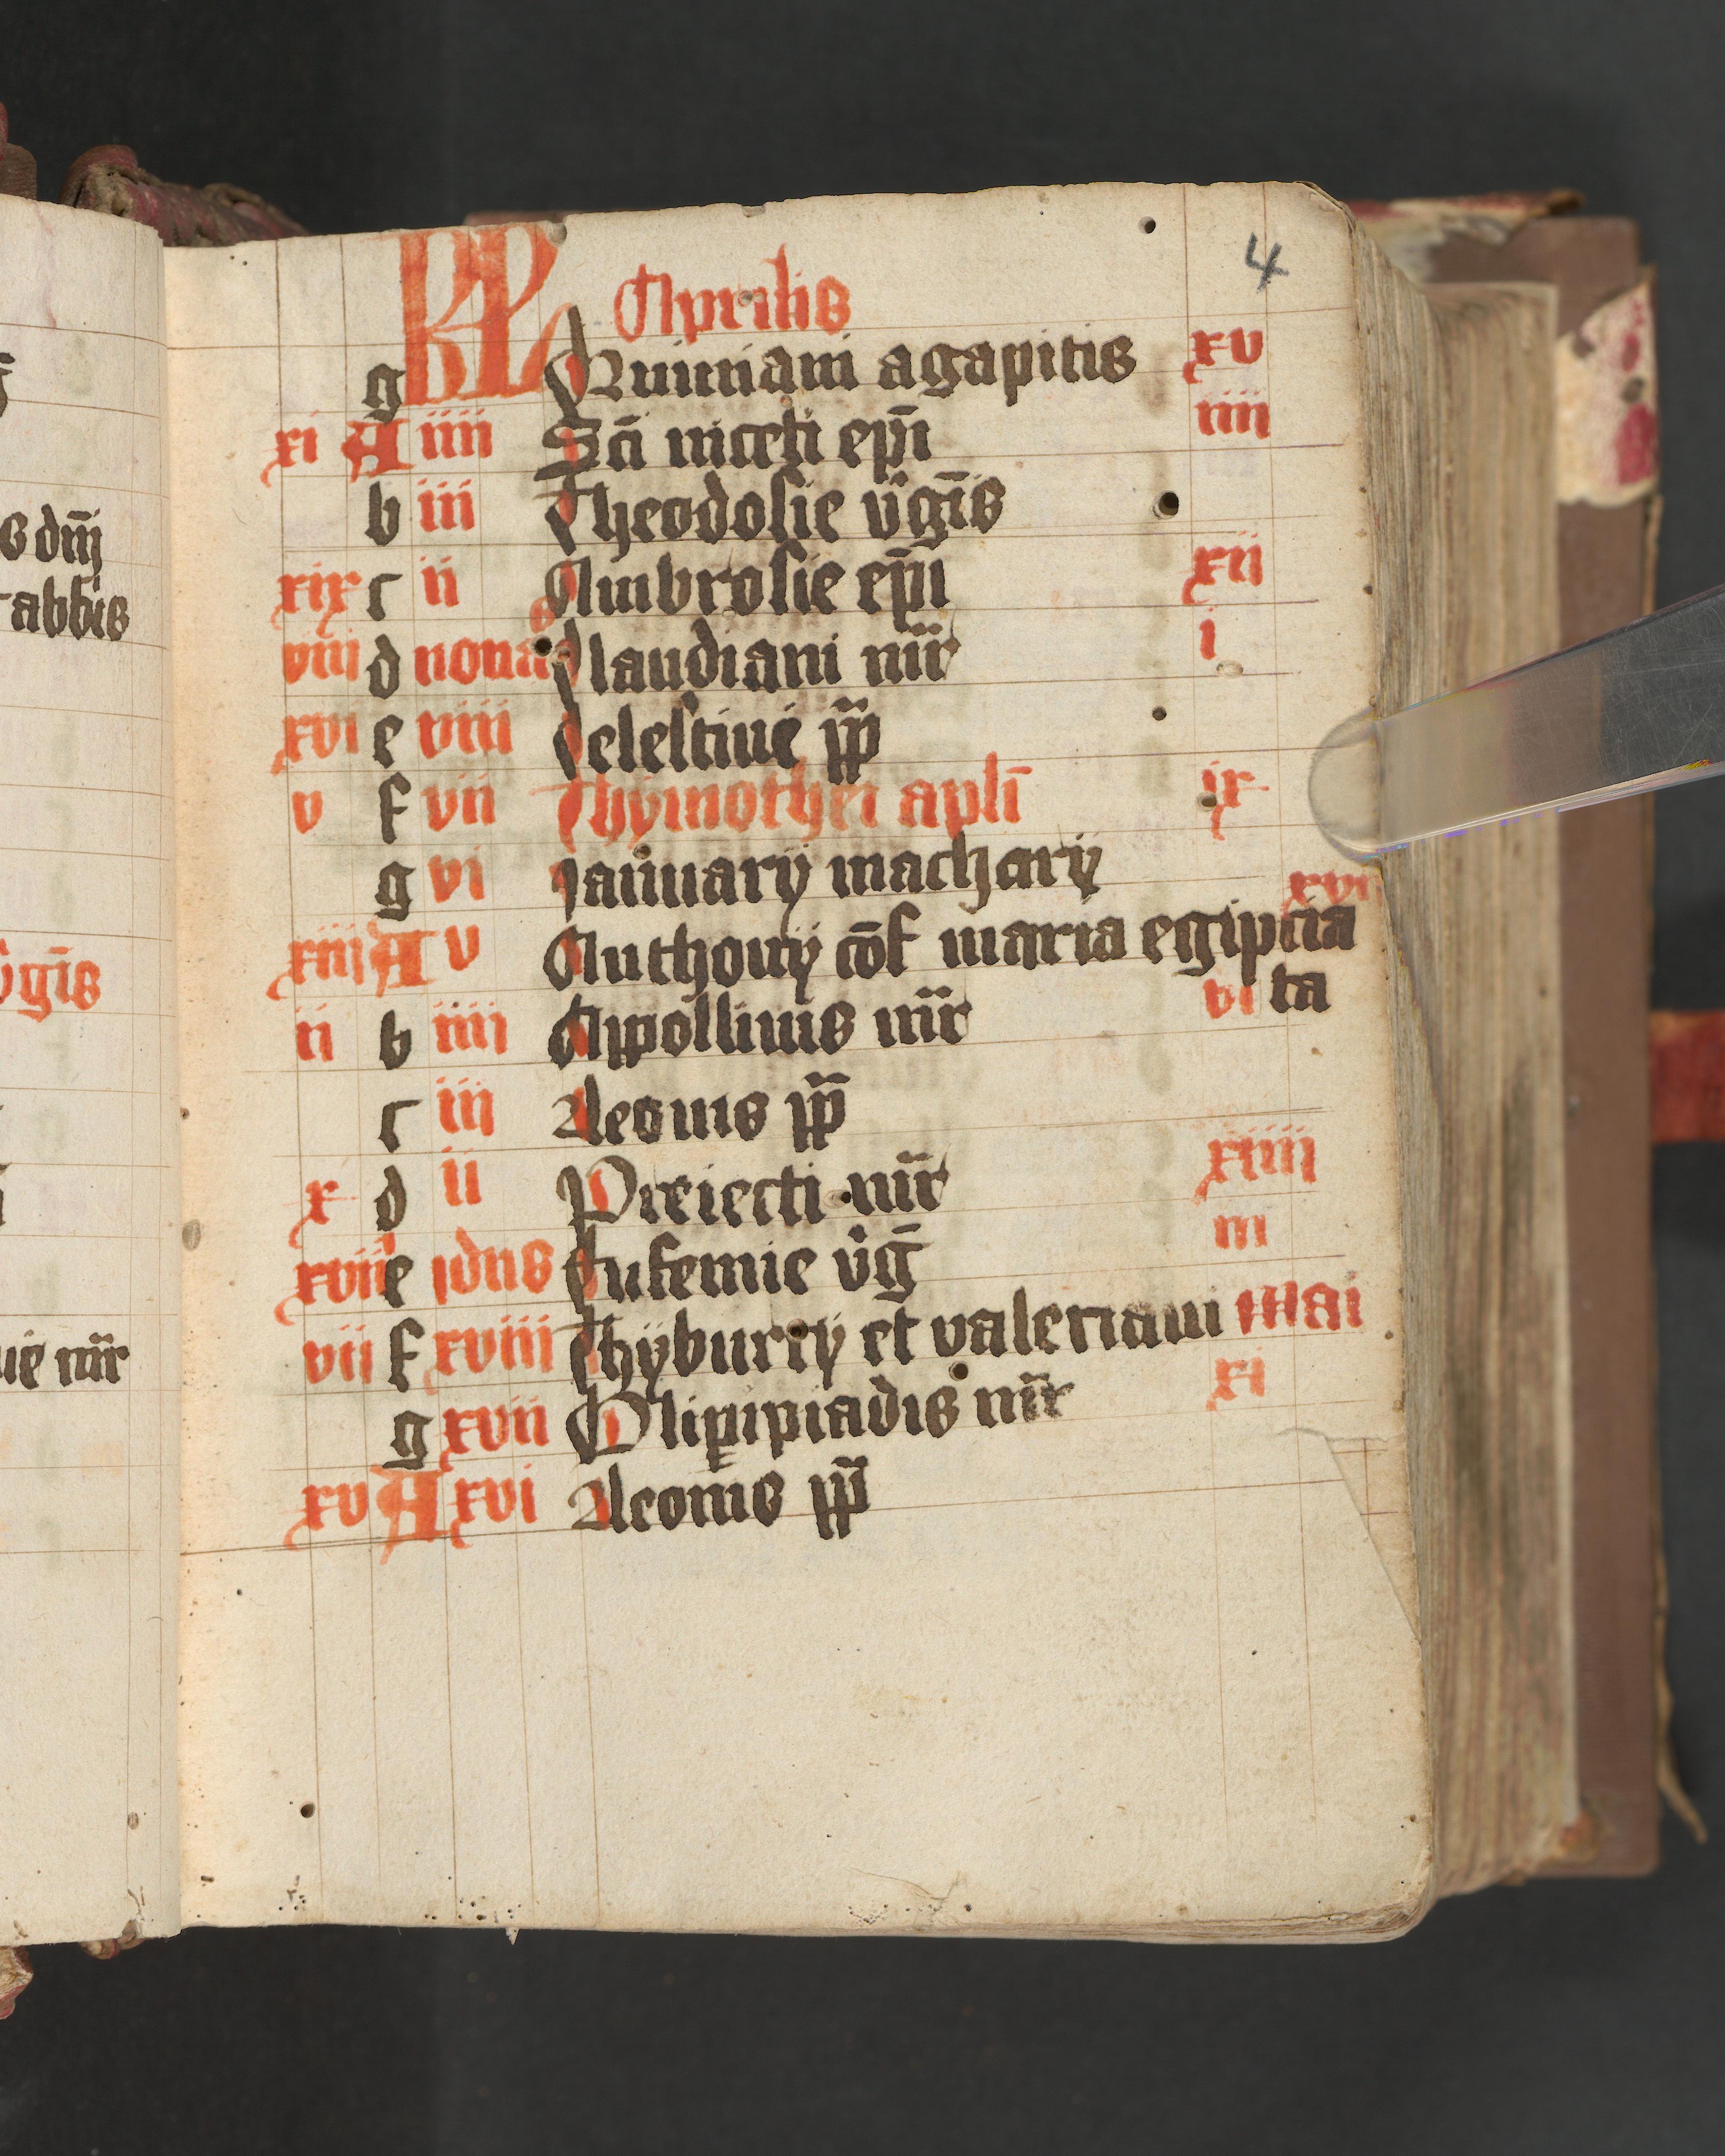 4
KL Aprilis
g Quiriani agapitis xv
xi A iiii Sc̄i niceti ep̄i iiii
b iii Theodosie v̄gīs
xix c ii Ambrosie ep̄i xii
viii d nonas Claudiani mr̄ i
xvi e viii Celestine pp̄
v f vii Thymothei aplī ix
g vi Januarij macharij
xvi
xiii A v Anthonij cōf maria egiptia
ta
ii b iiii Appollinis mr̄ vi
c iii Leonis pp̄
x d ii Preiecti mr̄ xiiii
iii
xviii e idus Eufemie v̄g
vii f xviii Thyburcij et valeriani mai
g xvii Olimpiadis mr̄ xi
xv A xvi Leonis pp̄
s dn̄j
abbis
v̄gīs
mr̄